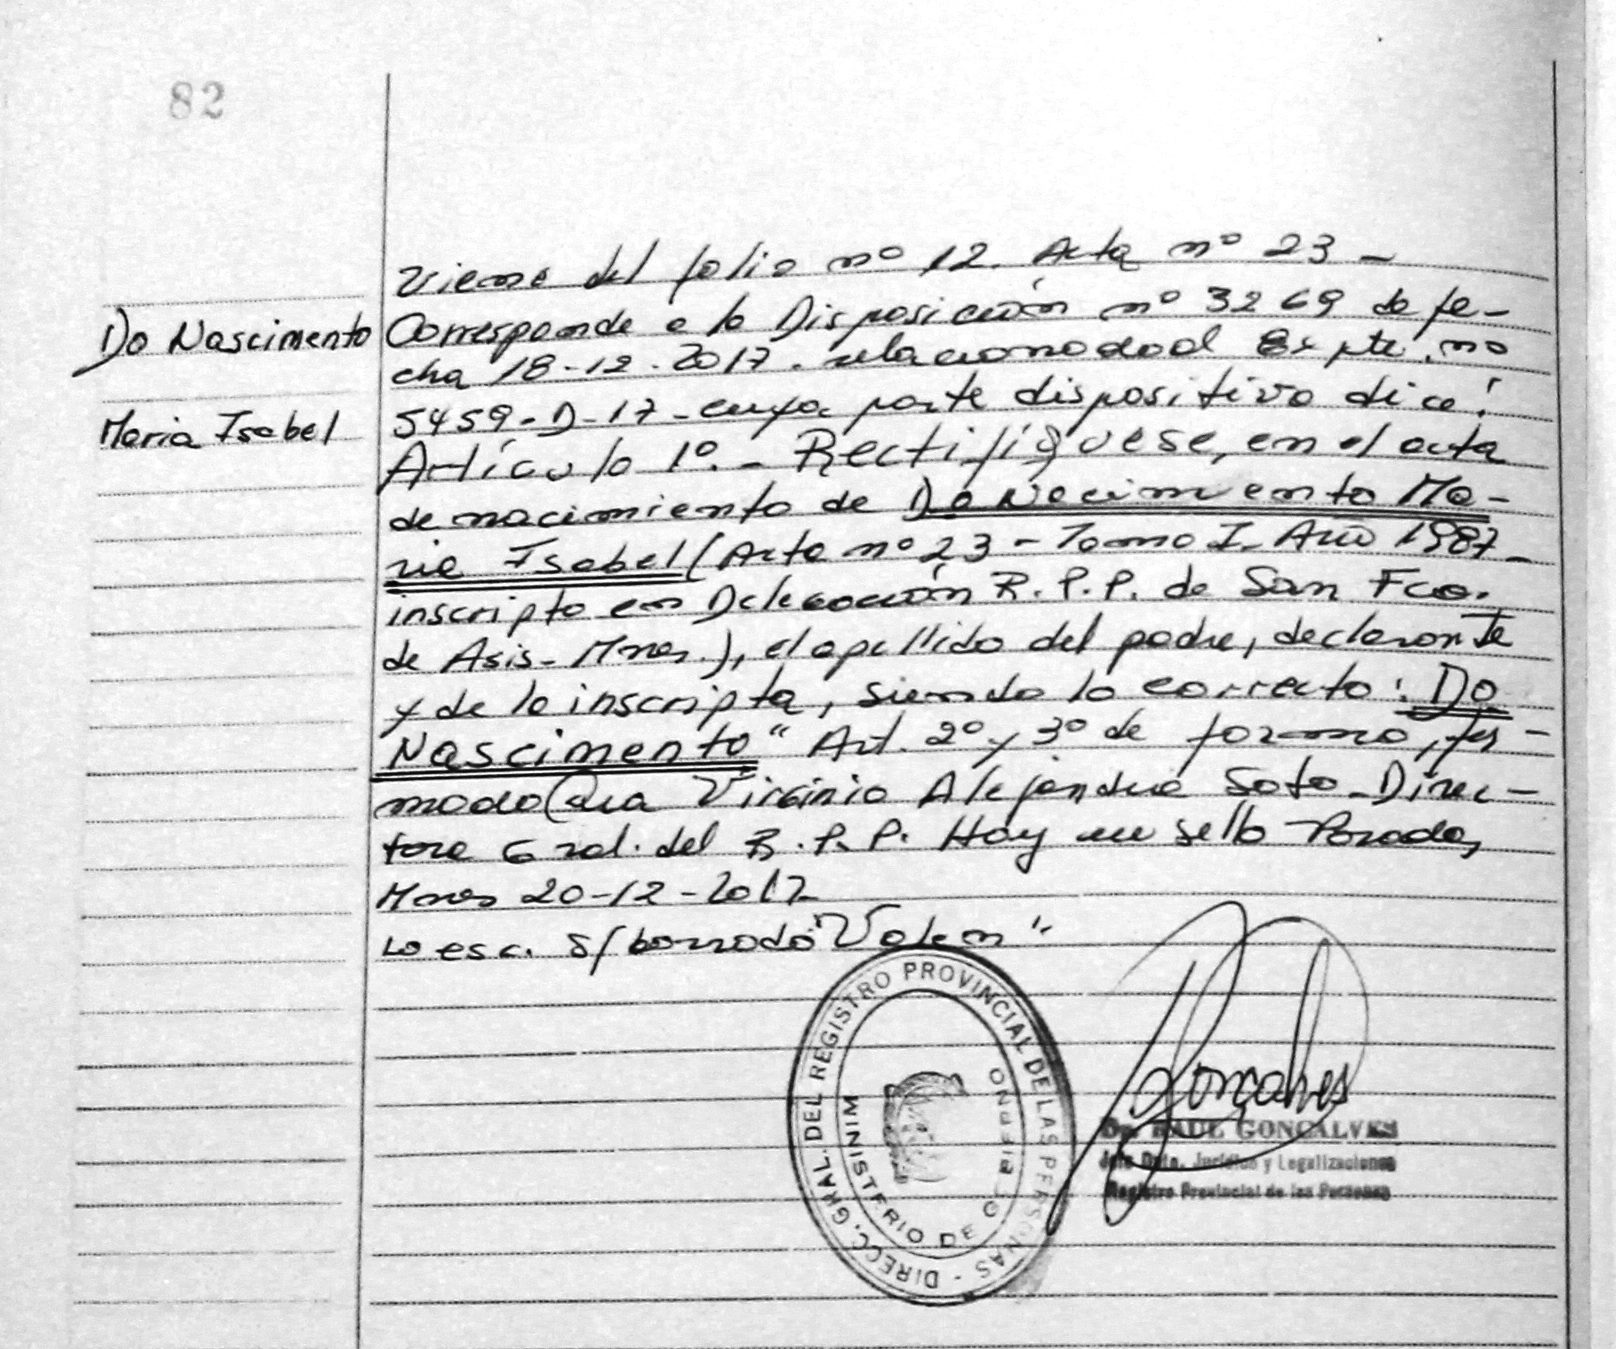 82
Viene del folio nº 12. Acta nº 23 -
Do Nascimento
Corresponde a la Disposición nº 3269 de fe-
cha 18-12-2017. relacionado al Expte. nº
Maria Isabel
5459-D-17- cuya parte dispositiva dice:
Artículo 1º.- Rectifíquese, en el acta
de nacimiento de Do Nacimiento Ma-
ria Isabel (Acta nº 23 - Tomo I. Año 1987-
inscripta en Delegación R.P.P. de San Fco.
de Asis- Mnes.), el apellido del padre, declarante
y de la inscripta, siendo lo correcto: Do
Nascimento" Art. 2º y 3º de forma, fir-
mado Dra Virginia Alejandra Soto-Direc-
tora Gral. del R.P.P. Hay un sello Posadas,
Mnes 20-12-2017
Lo esc. s/ borrado "Valen"
DIRECC. GRAL. DEL REGISTRO PROVINCIAL DE LAS PERSONAS -
MINISTERIO DE GOBIERNO
Gonçalves
Dr. RAUL GONCALVES
Jefe Dpto. Jurídico y Legalizaciones
Registro Provincial de las Personas